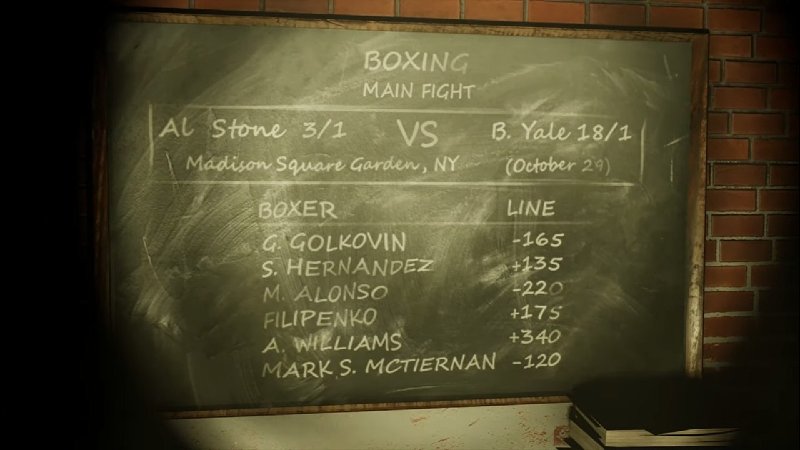 BOXING
MAIN FIGHT
Al Stone 3/1 VS B. Yale 18/1
Madison Square Garden, NY (October 29)
BOXER LINE
G. GOLKOVIN -165
S. HERNANDEZ +135
M. ALONSO -220
FILIPENKO +175
A. WILLIAMS +340
MARK S. MCTIERNAN -120